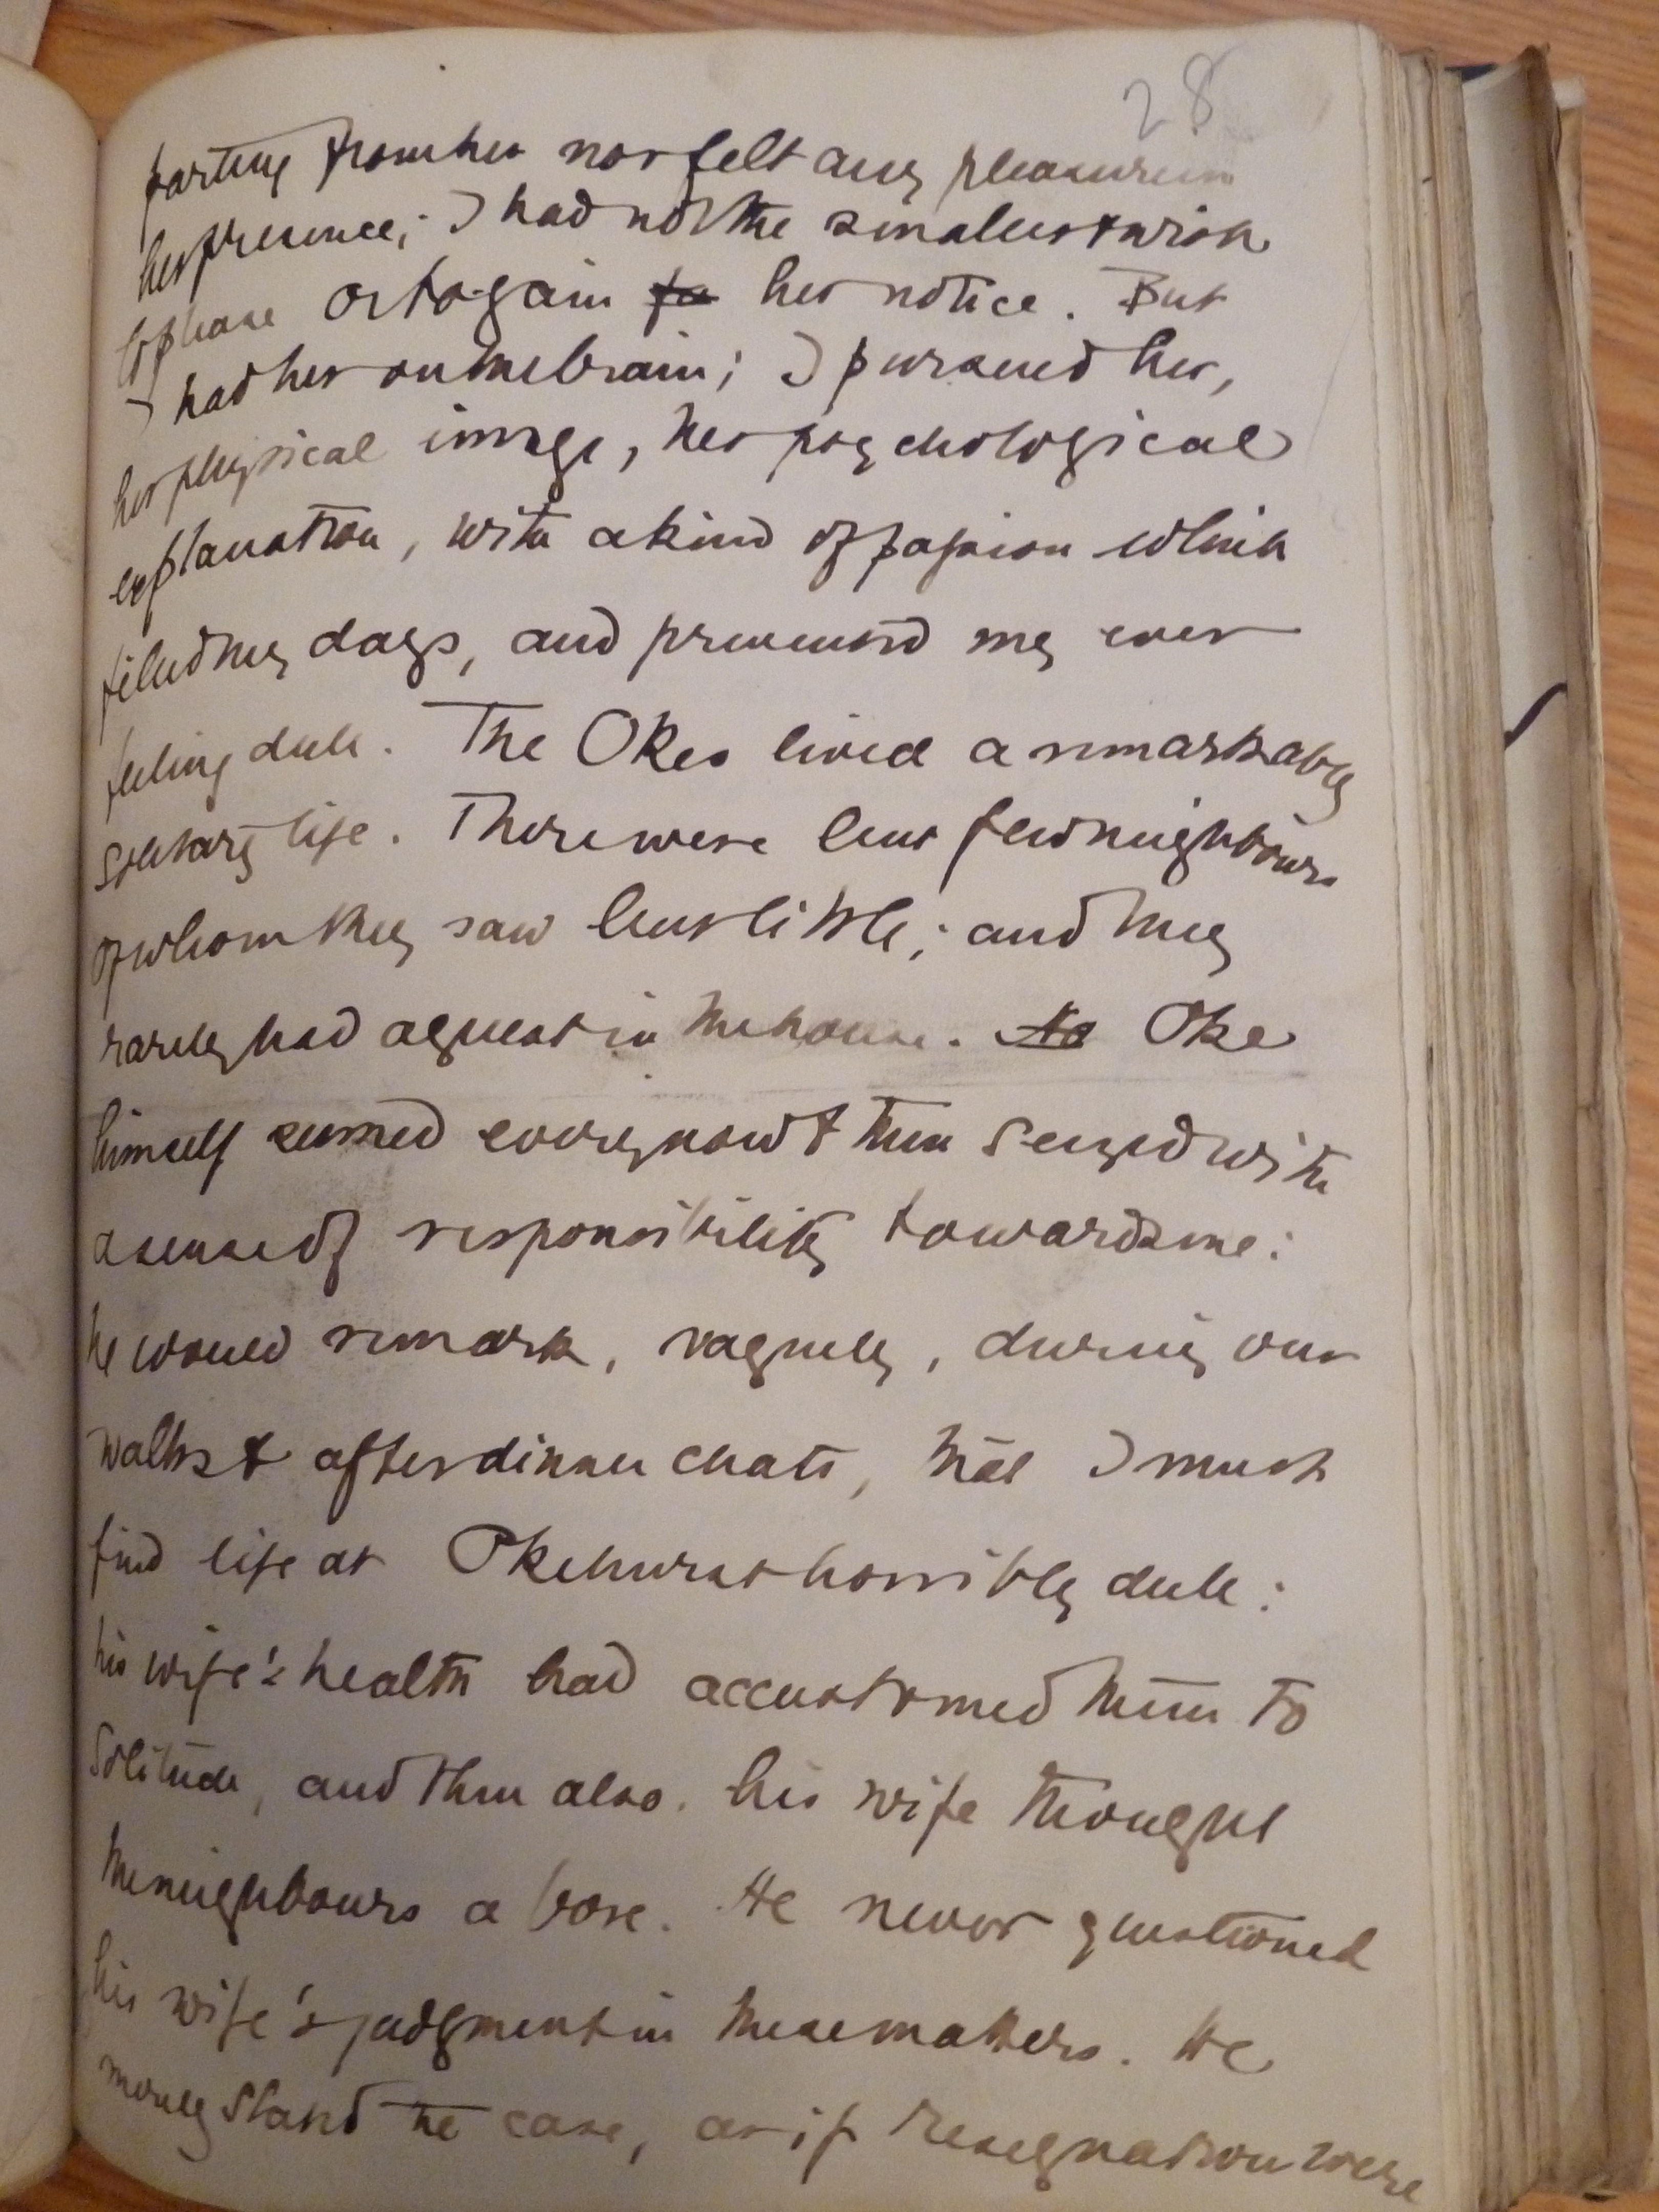 28
parting from her nor felt any pleasure in
her presence; I had not the smallest wish
to please or to gain <s>to</s> her notice. But
I had her on the brain; I pursued her,
her physical image, her psychological
explanation, with a kind of passion which
filled my days, and prevented my ever
feeling dull. The Okes lived a remarkably
solitary life. There were but few neighbours
of whom they saw but little; and they
rarely had a guest in the house. <s>No</s> Oke
himself seemed every now & then seized with
a sense of responsibility towards me:
he would remark, vaguely, during our
walks & after dinner chats, that I must
find life at Okehurst horribly dull:
his wife's health had accustomed him to
solitude, and then also. his wife thought
the neighbours a bore. He never questioned
his wife's judgment in these matters. He
merely stated the case, as if resignation were